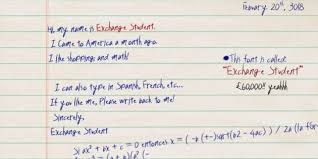 February 20th, 3018
Hi, my name is Exchange Student.
I Came to America a month ago.
I like shopping and math!
This font is called
"Exchange Student"
I can also type in Spanish, French, etc...
£60,000!! yeahhh
If you like me, Please write back to me!
Sincerely,
Exchange Student
Si ax² + bx + c = 0 entonces x = (-b (+-)sqrt(b2 - 4ac)) / 2a (la for